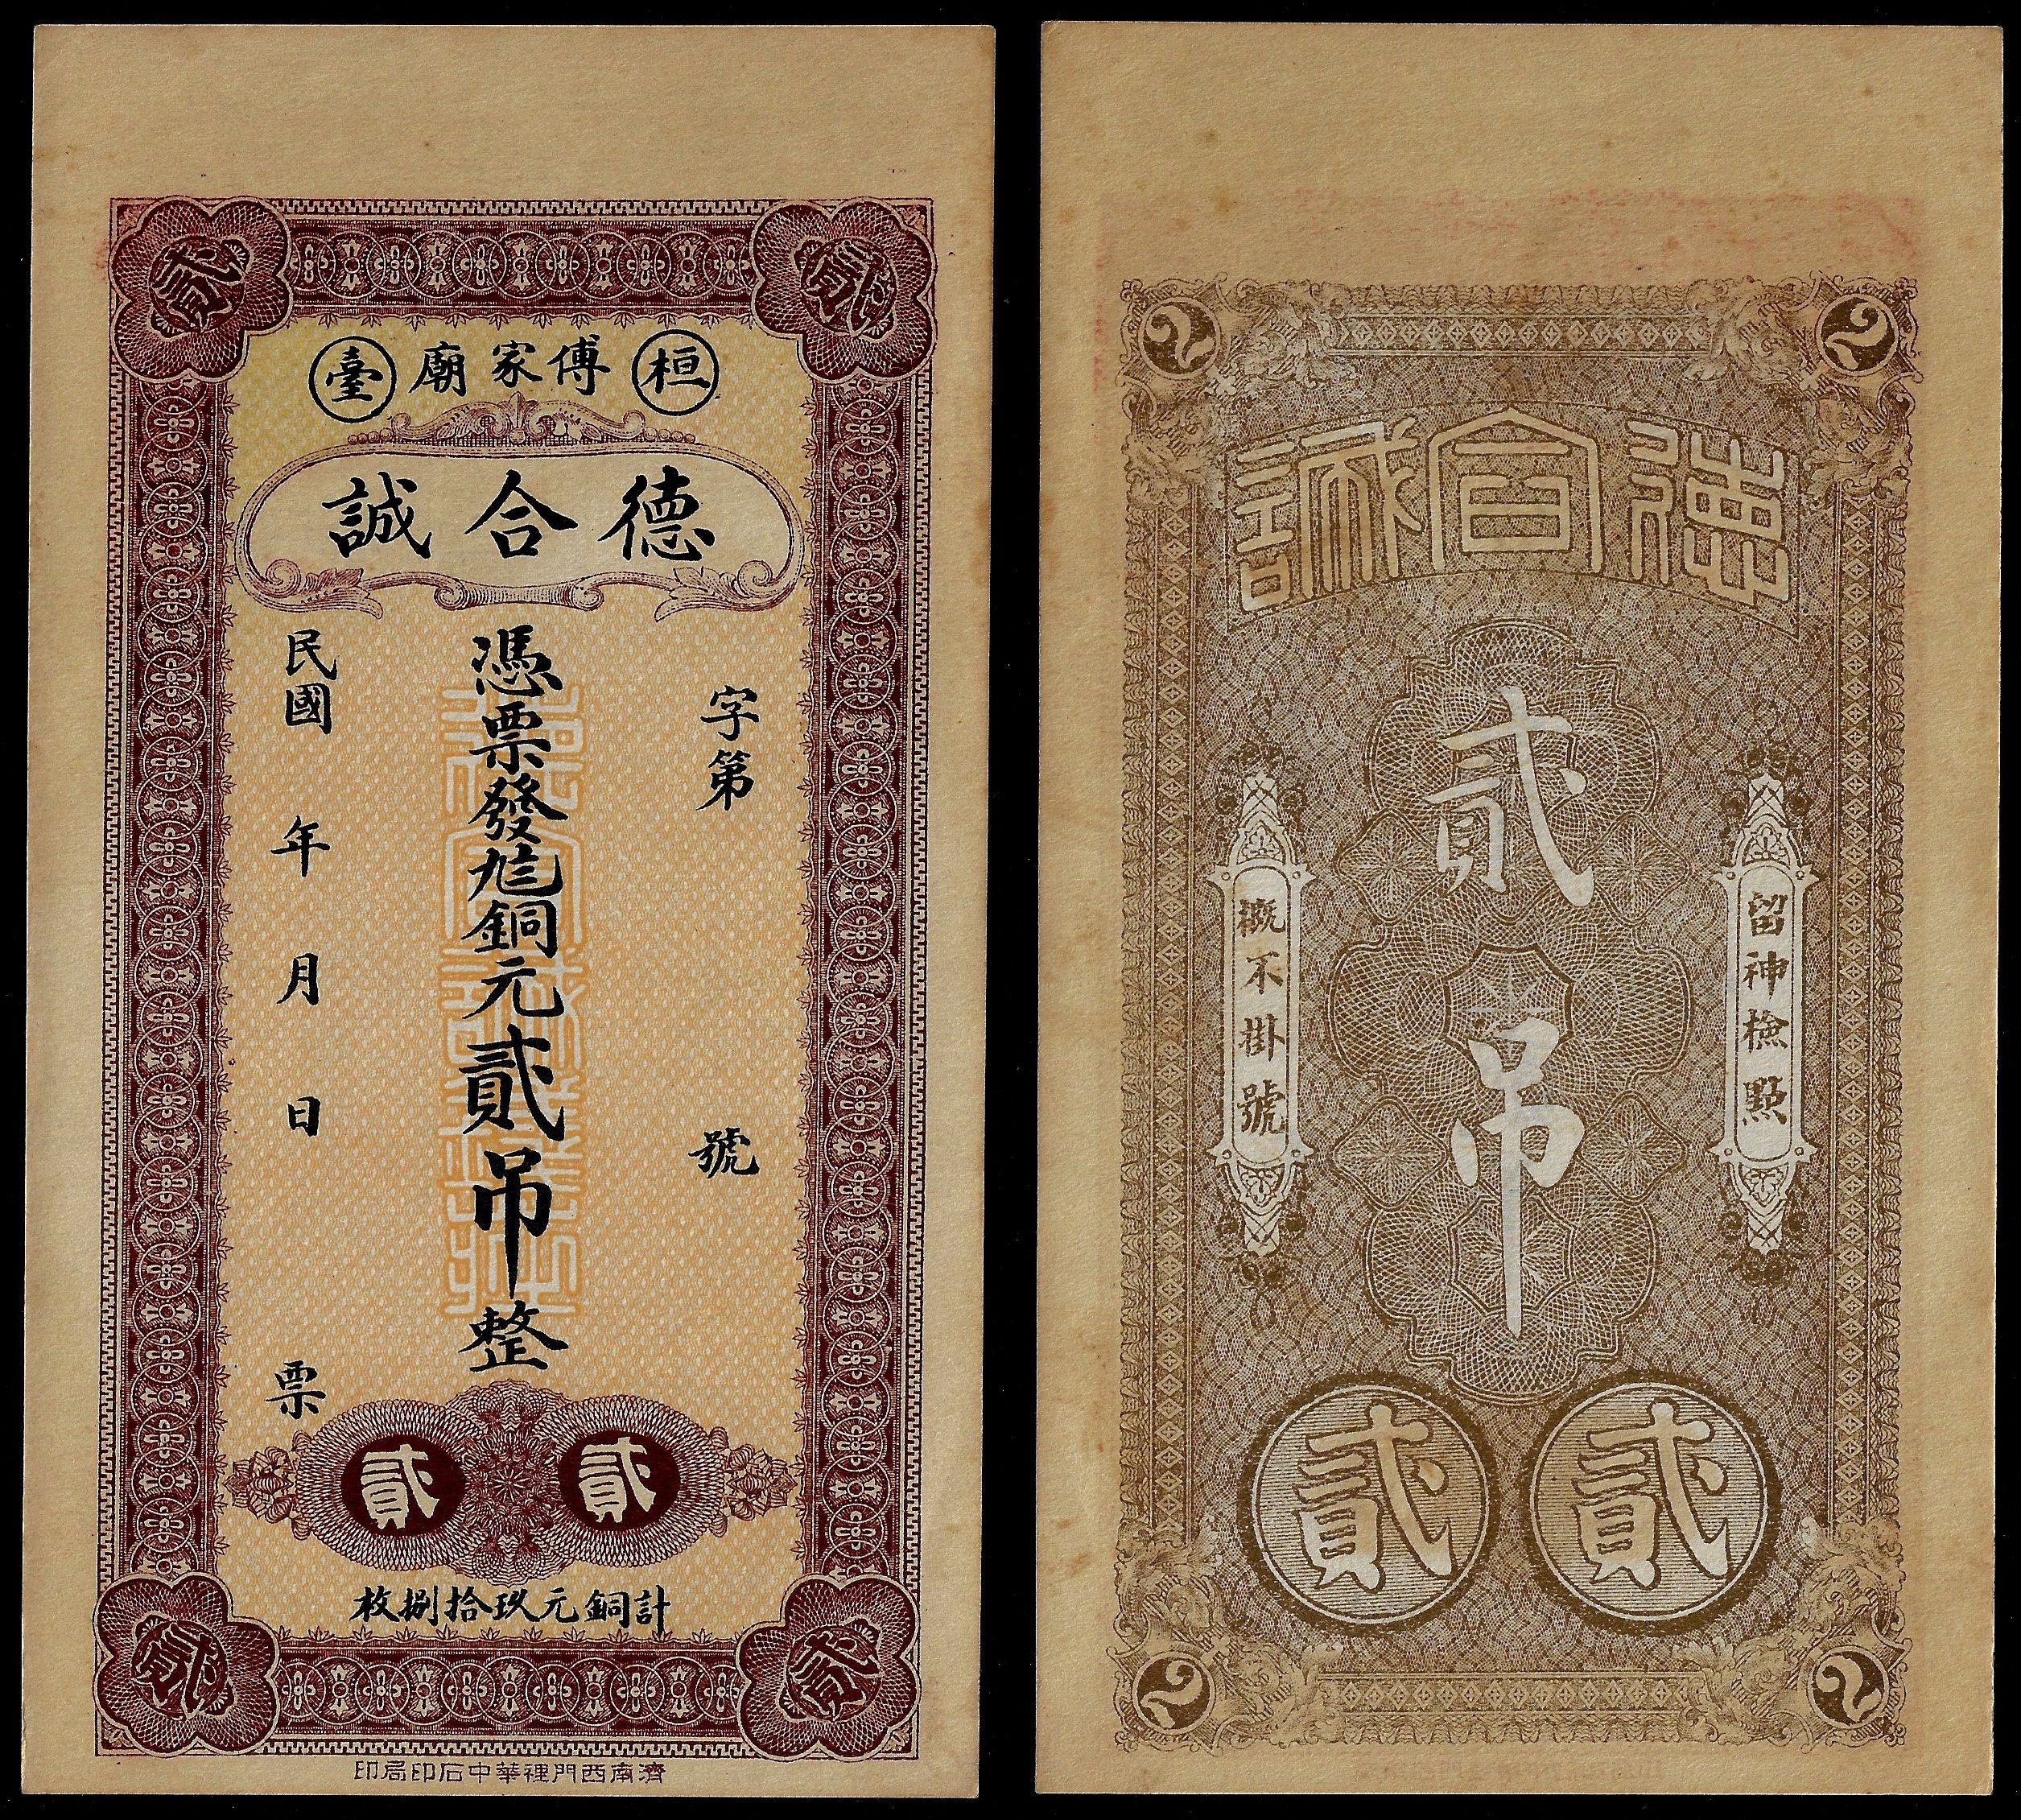 貳
貳
桓傅家廟臺
德合誠
字第 號
憑票發銅元貳吊整
民國 年 月 日 票
德合誠
貳
貳
計銅元玖拾捌枚
貳
貳
濟南西門裡華中石印局印
2
2
德合誠
留神檢點
貳吊
概不掛號
貳
貳
2
2